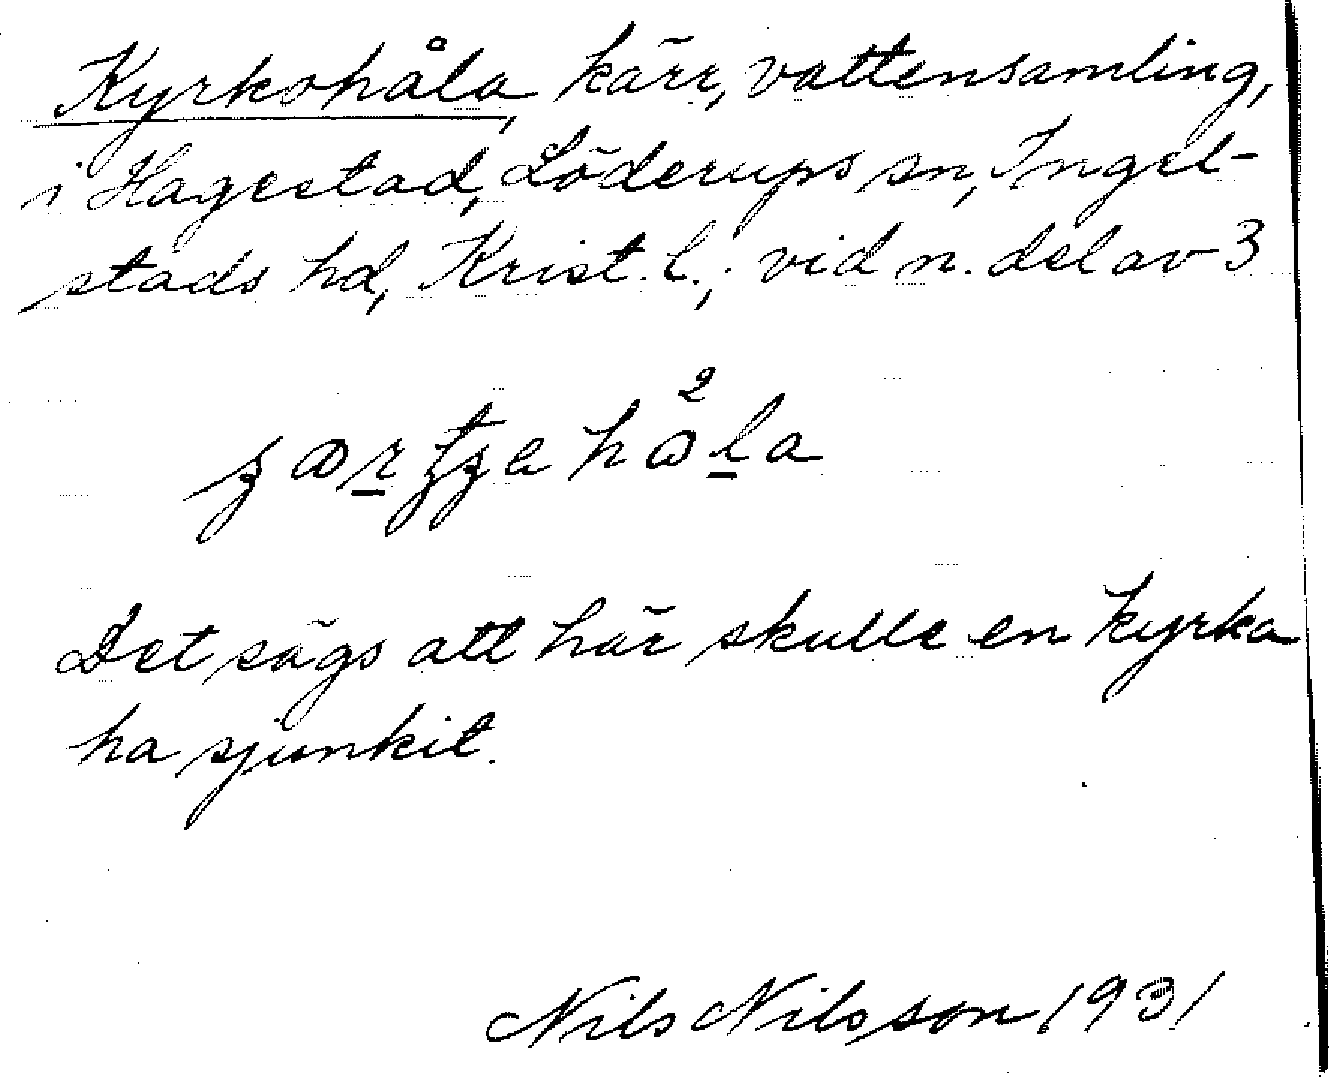 Kyrkohåla, kärr, vattensamling,
i Hagestad, Löderups sn, Ingel-
stads hd, Krist. l.; vid n. del av 3
håla
Det sägs att här skulle en kyrka
ha sjunkit.
Nils Nilsson 1931